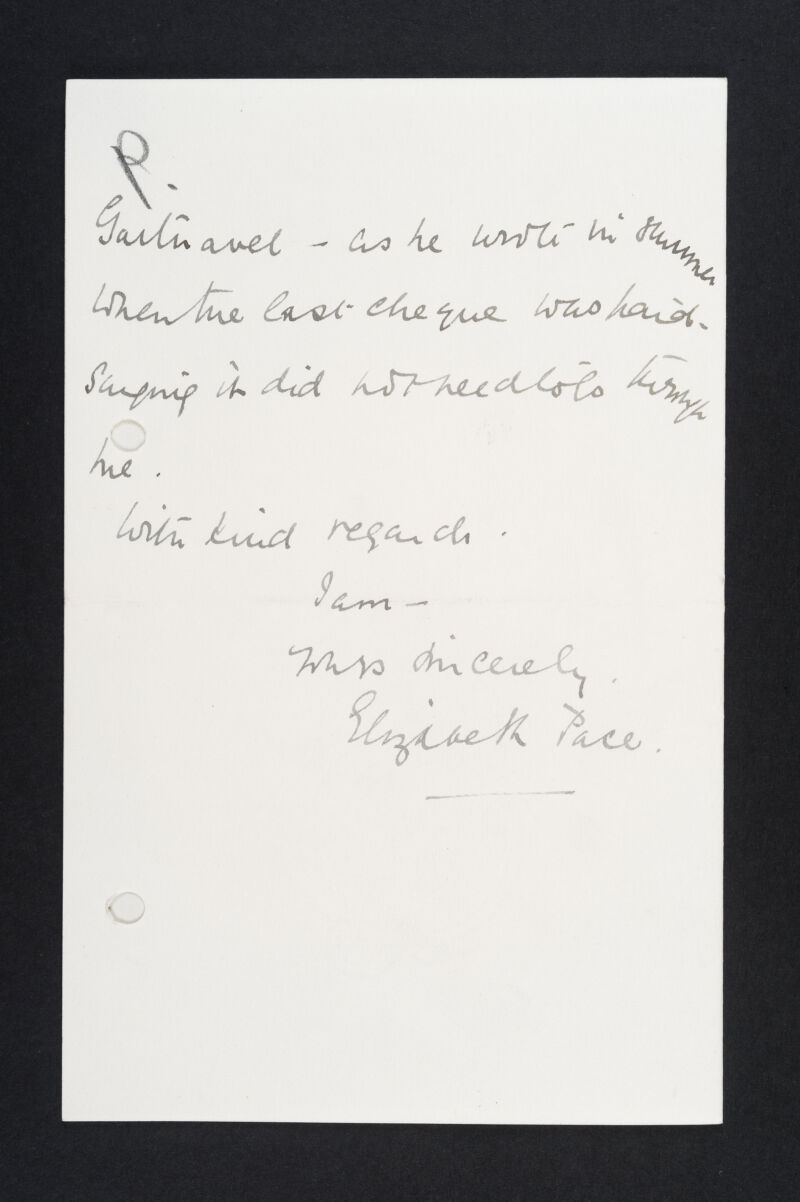 P.
Gartnavel - as he wrote in summer
when the last cheque was paid -
saying it did not need to go through
me.
With kind regards.
I am -
Yours sincerely.
Elizabeth Pace.